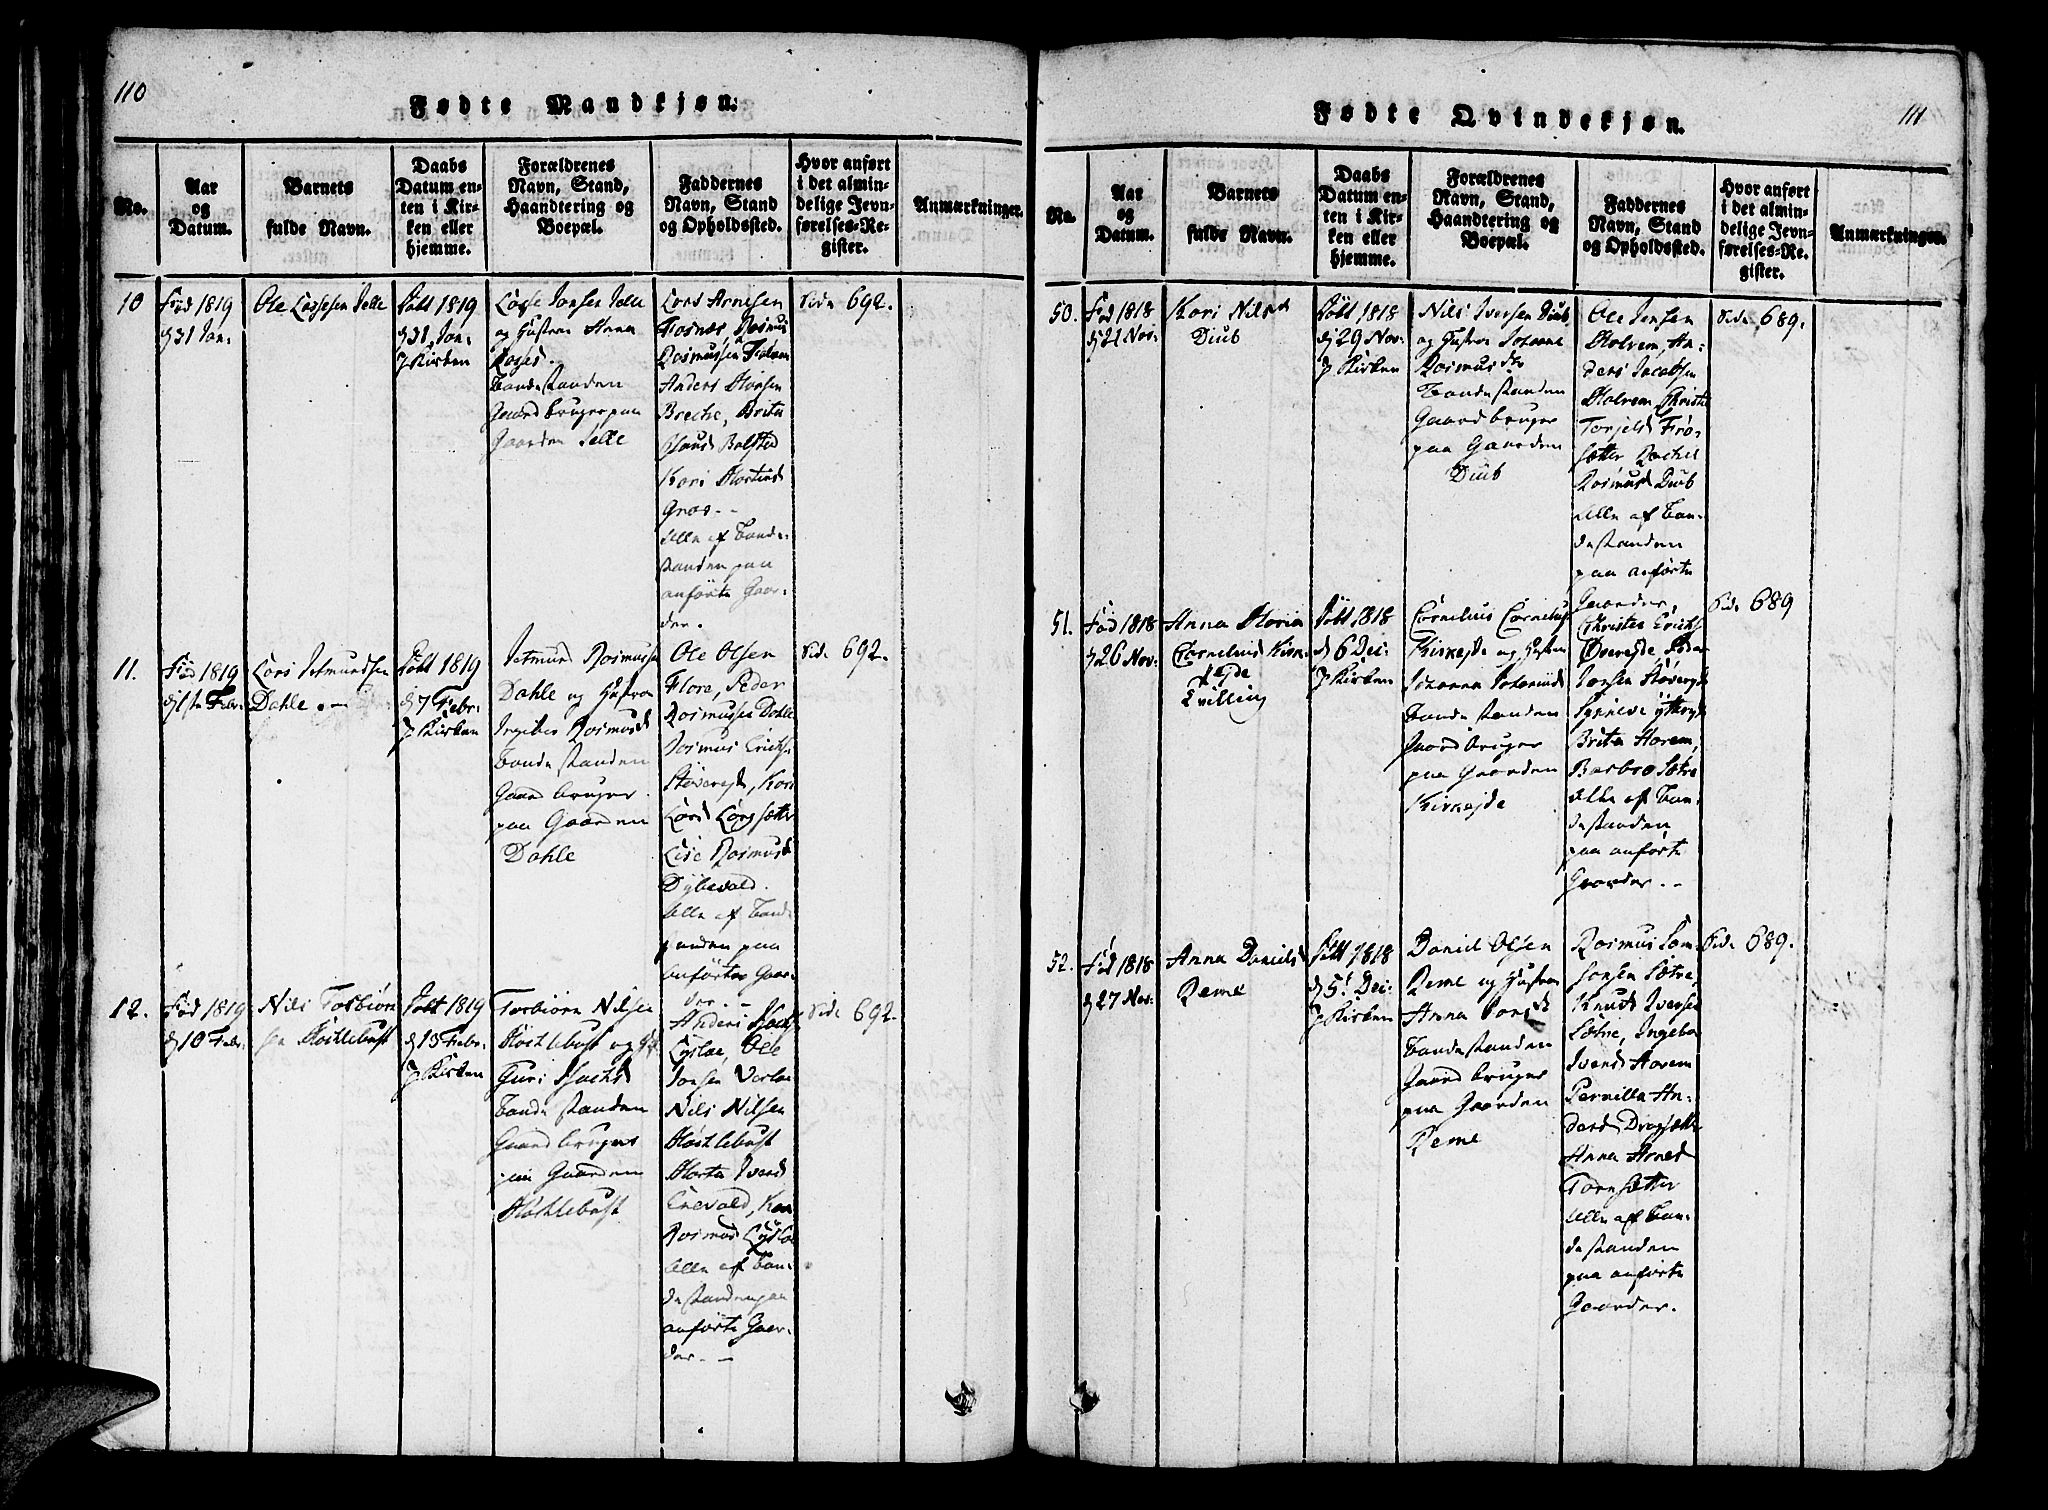 110
Fødte Mandkjøn.
No.
Aar
og
Datum.
Barnets
fulde Navn.
Daabs
Datum en-
ten i Kir-
ken eller
hjemme.
Forældrenes
Navn, Stand,
Haandtering og
Boepæl.
Faddernes
Navn, Stand
og Opholdssted.
Hvor anført
i det almin-
delige Jevn-
førelses-Re-
gister.
Anmærkninger.
10
Föd 1819
d 31 Jan:
Ole Lassesen Selle
Döbt 1819
d 31 Jan:
J Kirken
Lasse Jonsen Selle
og Hustru Anna
Bondestanden
Gaardbruger paa
Gaarden Selle
Lars Arnesen
Rasmussen
Anders
Breche, Brita
Bolsted
Kari
Alle af Bonde-
standen paa
anförte Gaar-
der.
Side 692.
11.
Föd 1819
d 1ste Febr:
Lars Jetmundsen
Dahle.
Döbt 1819
d 7 Febr:
J Kirken
Jetmund Rasmuss
Dahle og Hustru
Ingebor Rasmusd
Bondestanden
Gaardbruger
paa Gaarden
Dahle
Ole Olsen
Flore, Peder
Rasmussen Dahle
Rasmus Ericks
Störeide, Kari
Lise Rasmusd
Dybevold.
Alle af Bond
standen paa
anförte Gaar-
der. -
Side 692.
12.
Föd 1819
d 10 Febr:
Nils Torbiörn
sen Maklebust
Döbt 1819
d 13 Febr:
J Kirken
Torbiörn Nilsen
Maklebust og
Guri
Bondestanden
Gaardbruger
paa Gaarden
Maklebust
Anders
Ole
Jonsen
Nils Nilsen
Maklebust
Marta Ivers
Enevold, Kari
Rasmusd
Alle af Bon-
destanden paa
anförte Gaar-
der. -
Side 692.
111
Fødte Qvindekjøn.
No.
Aar
og
Datum.
Barnets
fulde Navn.
Daabs
Datum en-
ten i Kir-
ken eller
hjemme.
Forældrenes
Navn, Stand,
Haandtering og
Boepæl.
Faddernes
Navn, Stand
og Opholdssted.
Hvor anført
i det almin-
delige Jevn-
førelses-Re-
gister.
Anmærkninger.
50.
Föd 1818
d 21 Nov:
Kari Nilsd
Diub
Döbt 1818
d 29 Nov:
J Kirken
Nils Iversen Diub
og Hustru Johanne
Rasmusdtr
Bondestanden
Gaardbruger
paa Gaarden
Diub
Ole Jensen
An-
ders Jacobsen
Christi
Torjels Frö-
sætter Rachel
Rasmusd Diub
Alle af Bon-
destanden
paa anförte
Gaarder
Side 689.
51.
Föd 1818
d 26 Nov:
Anna Maria
Cornelius Kirk-
ejde
Tvilling
Döbt 1818
d 6 Dec:
J Kirken
Cornelius Cornelius
Kirkejde og Hustru
Johanna
Bondestanden
Gaardbruger
paa Gaarden
Kirkejde
Christen Ericks
Peder
Jansen
Synneve
Brita
Barbro Sætre
Alle af Bon-
destanden
paa anförte
Gaarder. -
Side 689
52.
Föd 1818
d 27 Nov:
Anna Daniels
Reme
Döbt 1818
d 5. Dec:
J Kirken
Daniel Olsen
Reme og Hustru
Anna
Bondestanden
Gaardbruger
paa Gaarden
Reme
Rasmus
Sætre
Knud Iversen
Sætre, Ingebor
Ivers
Pernilla An-
ders Dragsætter
Anna Arned
Alle af Bon-
destanden
paa anförte
Gaarder.
Side 689.